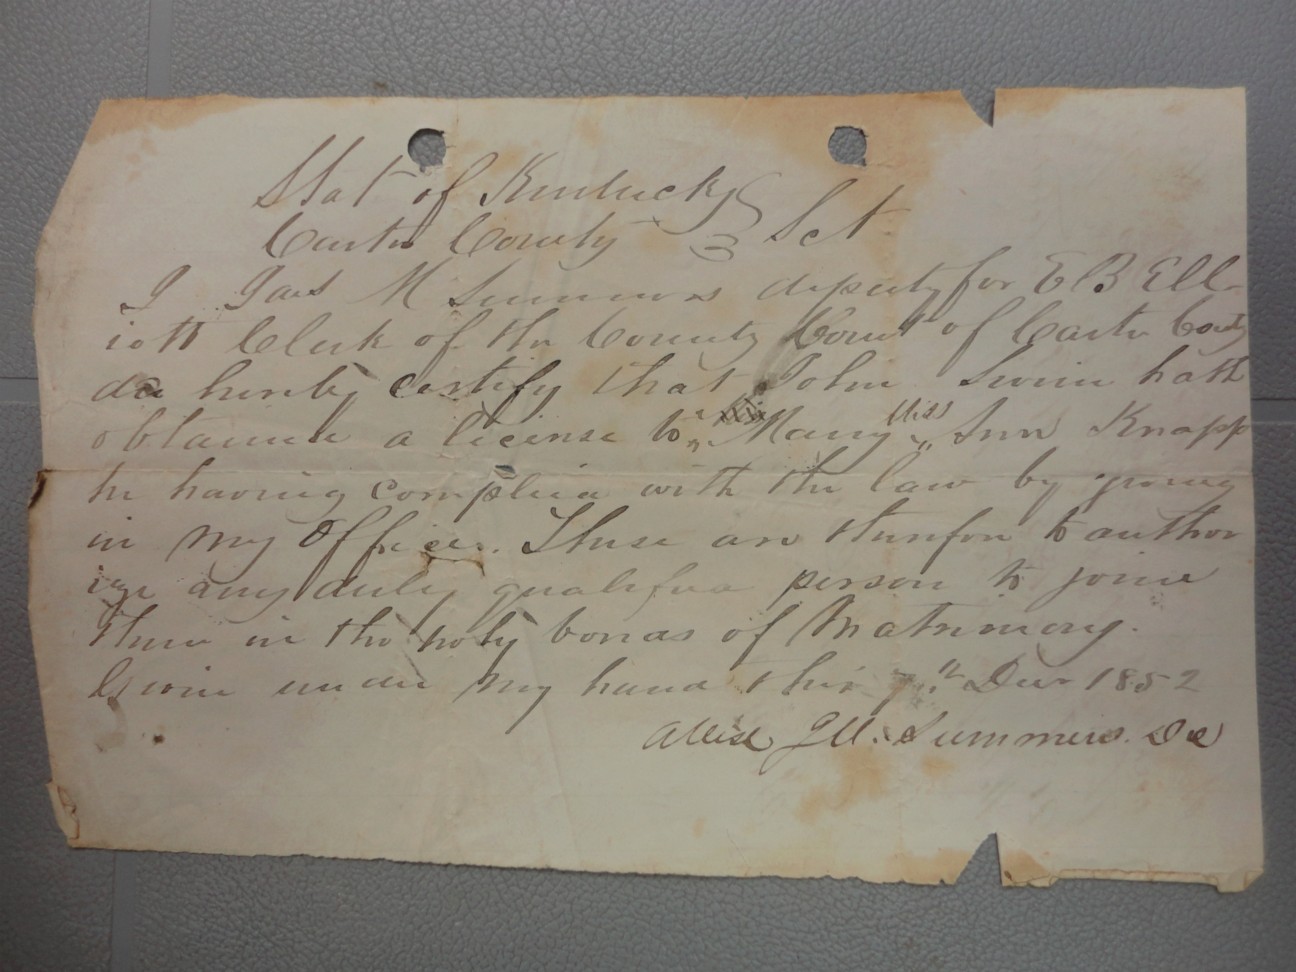 Stat of Kentucky
Carter County Sct
I Jas M Summers deputy for E B Ell-
iott Clerk of the County Court of Carter County
do hereby certify that John Swim hath
obtained a license to Mary Miss Ann Knapp
he having complied with the law by giveing
in my Office. These are therefore to author
ize any duly qualified person to joine
them in the holy bonds of Matrimony.
Given under my hand this 7th Decr 1852
Attest J M. Summers. D C